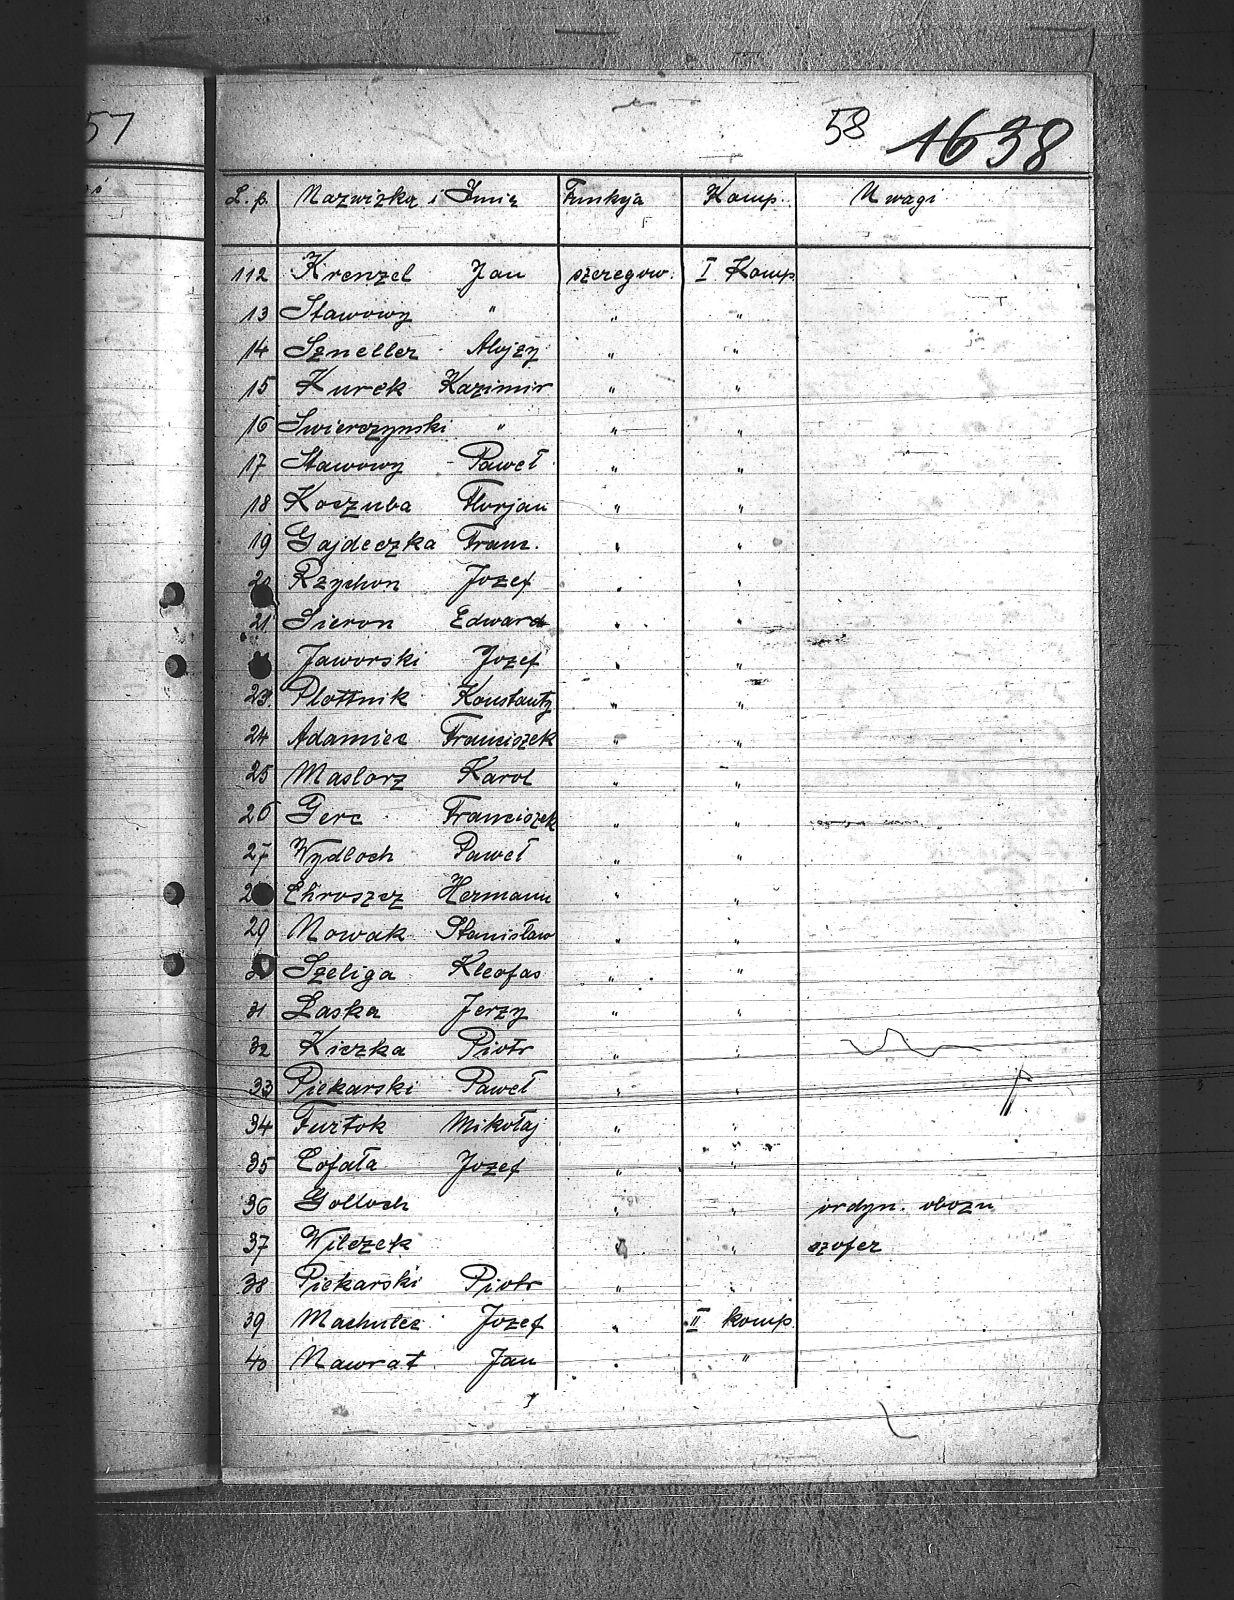 57
58 1638
L. p. Nazwizka i Imię Funkyja Komp. Uwagi
112 Krenzel Jan szeregow: I Komp
13 Stawowy " " "
14 Szneller Alojzy " "
15 Kurek Kazimir " "
16 Swierczynski " " "
17 Stawowy Paweł " "
18 Koczuba Florjan " "
19 Gajdeczka Franz. " "
20 Rzychon Jozef " "
21 Sieron Edward " "
Jaworski Jozef " "
23. Plottnik Konstanty " "
24 Adamiec Franciszek " "
25 Maslorz Karol " "
26 Gerc Franciszek " "
27 Wydloch Paweł " "
2 Chroszcz Hermann " "
29 Nowak Stanisław " "
3 Szeliga Kleofas " "
31 Laska Jerzy " "
32 Kiczka Piotr " "
33 Piekarski Paweł " "
34 Furtok Mikołaj " "
35 Cofała Jozef " "
36 Golloch " " ordyn. obozu
37 Wilczek " " szofer
38 Piekarski Piotr " "
39 Machulec Jozef " II komp.
40 Nawrat Jan " "